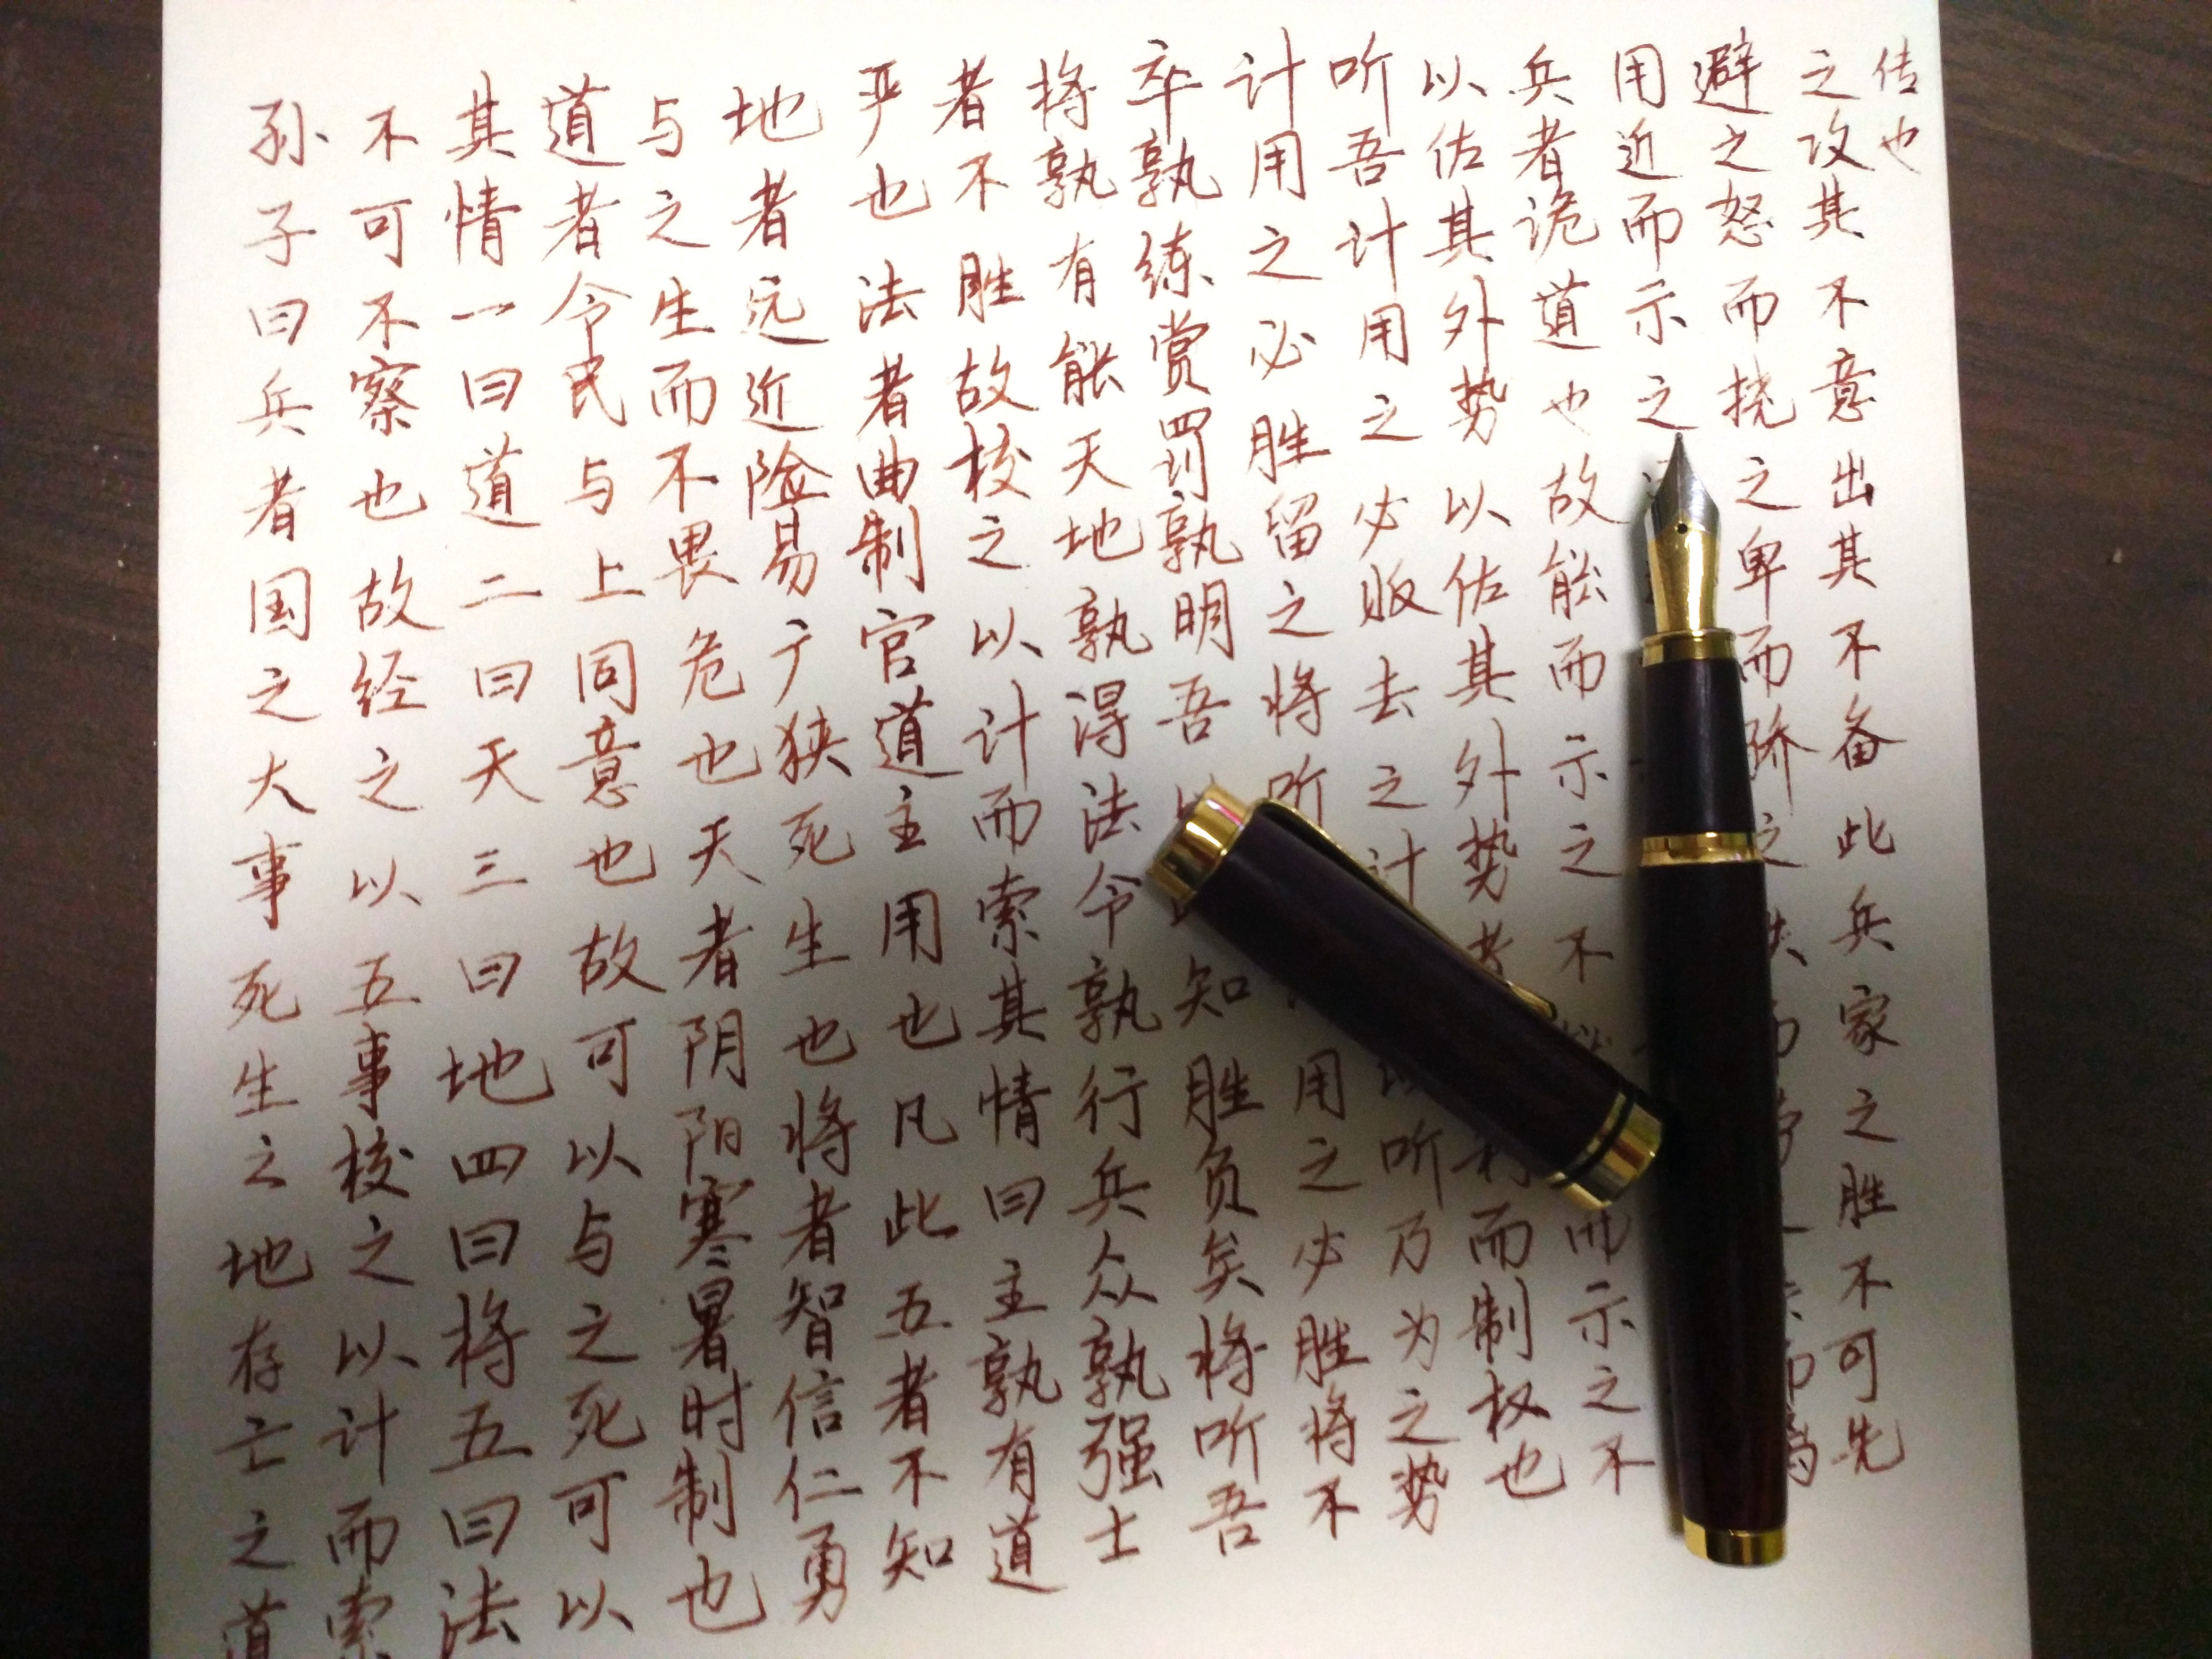 孙子曰兵者国之大事死生之地存亡之道
不可不察也故经之以五事校之以计而索
其情一曰道二曰天三曰地四曰将五曰法
道者令民与上同意也故可以与之死可以
与之生而不畏危也天者阴阳寒暑时制也
地者远近险易广狭死生也将者智信仁勇
严也法者曲制官道主用也凡此五者不知
者不胜故校之以计而索其情曰主孰有道
将孰有能天地孰得法令孰行兵众孰强士
卒孰练赏罚孰明吾知胜负矣将听吾
计用之必胜留之将听用之必胜将不
听吾计用之必败去之计以听乃为之势
以佐其外势以佐其外势者利而制权也
兵者诡道也故能而示之不而示之不
用近而示之
避之怒而挠之卑而骄之
之攻其不意出其不备此兵家之胜不可先
传也